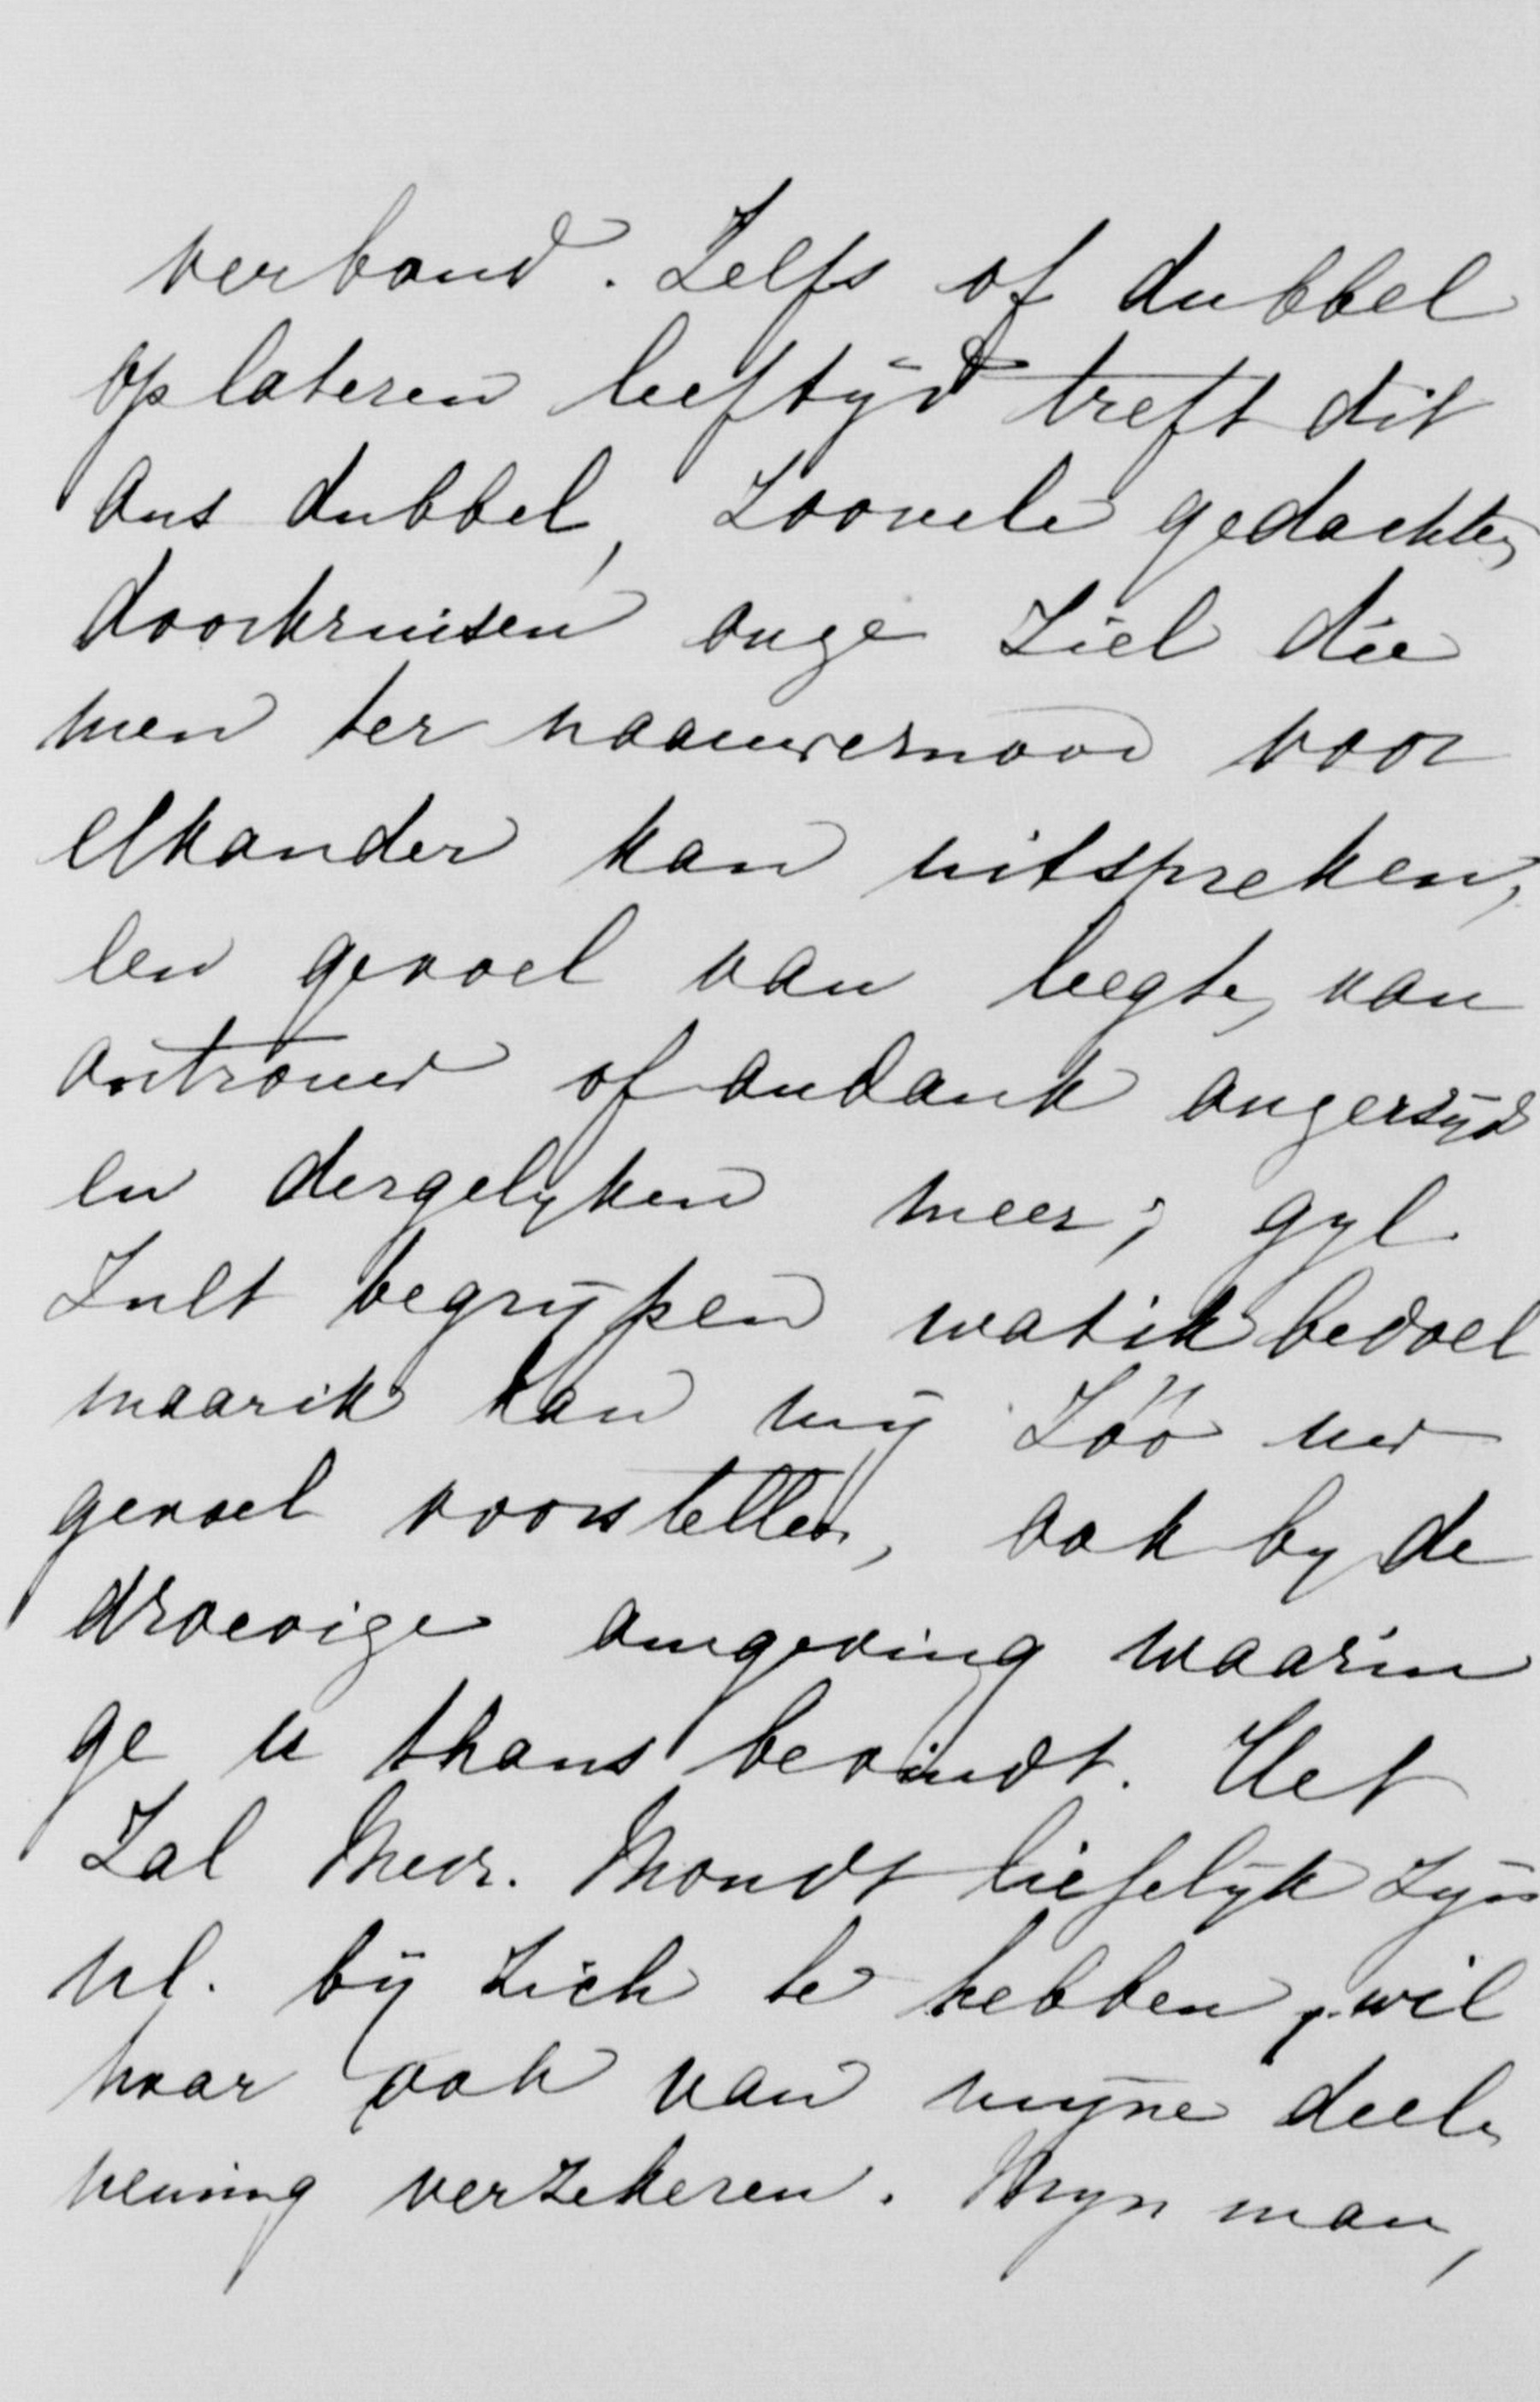 verband. Zelfs of dubbel
op lateren leeftijd treft dit
ons dubbel, zoovele gedachten
doorkruisen onze ziel die
men ter naauwernood voor
elkander kan uitspreken,
een gevoel van leegte, van
ontrouw of ondank onzerzijds
en dergelyken meer; gyl.
zult begrijpen wat ik bedoel
maar ik kan mij zóó uw
gevoel voorstellen, ook by de
droevige omgeving waarin
ge u thans bevindt. Het
zal Mevr. Mondt liefelijk zijn
ul. bij zich te hebben, wil
haar ook van mijne deel-
neming verzekeren. Myn man,